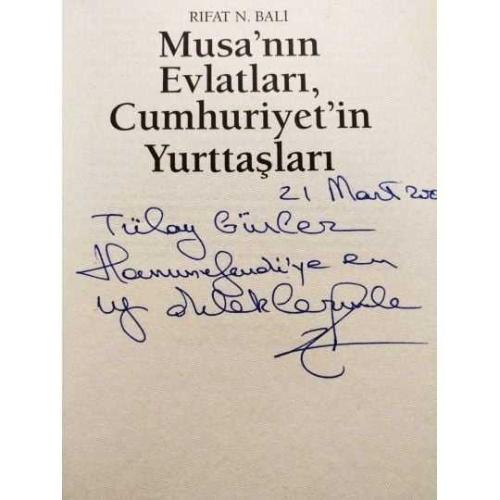 RIFAT N. BALİ
Musa'nın
Evlatları,
Cumhuriyet'in
Yurttaşları
21 Mart 200
Tülay Gürler
Hanımefendi'ye en
iyi dileklerimle